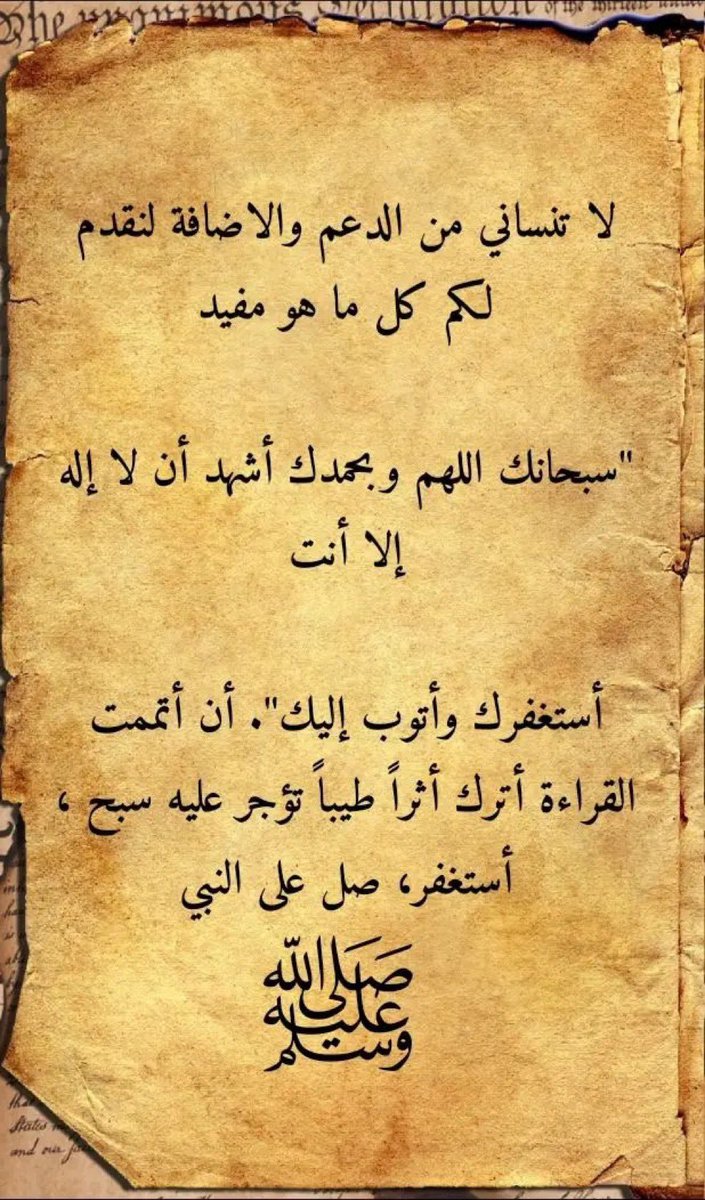 The unanimous Declaration of the thirteen united
لا تنساني من الدعم والاضافة لنقدم
لكم كل ما هو مفيد
"سبحانك اللهم وبحمدك أشهد أن لا إله
إلا أنت
أستغفرك وأتوب إليك". أن أتممت
القراءة أترك أثراً طيباً تؤجر عليه سبح ،
أستغفر، صل على النبي
صلى الله
عليه
وسلم
that
States
and our